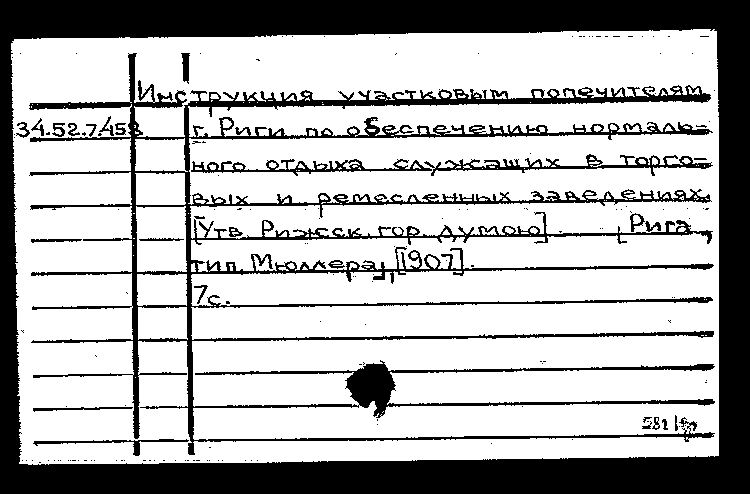 Инструкция участковым попечителям
34.52.7/458 г. Риги по обеспечению нормаль=
ного отдыха служащих в торго=
вых и ремесленных заведениях.
[Утв. Рижск. гор. думою]. [Рига,
тип. Мюллера], [1907].
7с.